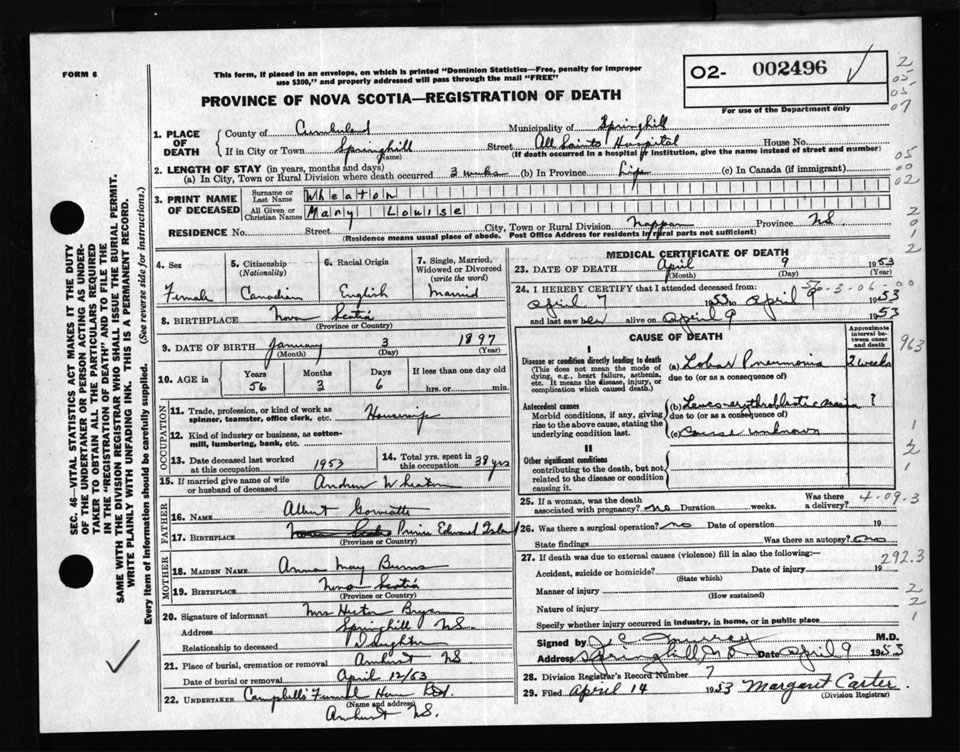 FORM 6
This form, if placed in an envelope, on which is printed "Dominion Statistics—Free, penalty for improper
use $300," and properly addressed will pass through the mail "FREE"
O2- 002496 ✓
For use of the Department only
2
05
05
07
PROVINCE OF NOVA SCOTIA—REGISTRATION OF DEATH
1. PLACE OF DEATH
County of Cumberland Municipality of Springhill
If in City or Town Springhill (Name) Street All Saints Hospital House No.
(If death occurred in a hospital or institution, give the name instead of street and number)
2. LENGTH OF STAY (in years, months and days)
(a) In City, Town or Rural Division where death occurred 3 weeks (b) In Province Life (c) In Canada (if immigrant)
05
00
02
3. PRINT NAME OF DECEASED
Surname or Last Name Wheaton
All Given or Christian Names Mary Louise
RESIDENCE No. Street City, Town or Rural Division Nappan Province NS
(Residence means usual place of abode. Post Office Address for residents in rural parts not sufficient)
2
0
1
2
4. Sex Female
5. Citizenship (Nationality) Canadian
6. Racial Origin English
7. Single, Married, Widowed or Divorced (write the word) Married
8. BIRTHPLACE Nova Scotia
(Province or Country)
9. DATE OF BIRTH January 3 1897
(Month) (Day) (Year)
10. AGE in Years 56 Months 3 Days 6 If less than one day old hrs. or min.
OCCUPATION
11. Trade, profession, or kind of work as spinner, teamster, office clerk, etc. Housewife
12. Kind of industry or business, as cotton-mill, lumbering, bank, etc.
13. Date deceased last worked at this occupation 1953
14. Total yrs. spent in this occupation 38 yrs
15. If married give name of wife or husband of deceased Andrew Wheaton
FATHER
16. NAME Albert
17. BIRTHPLACE Nova Scotia Prince Edward Island
(Province or Country)
MOTHER
18. MAIDEN NAME Anna May Burns
19. BIRTHPLACE Nova Scotia
(Province or Country)
20. Signature of informant Mrs Hector Bryan
Address Springhill NS.
Relationship to deceased Daughter
21. Place of burial, cremation or removal Amherst NS
Date of burial or removal April 12/53
22. UNDERTAKER Campbells Funeral Home
(Name and address)
Amherst NS.
MEDICAL CERTIFICATE OF DEATH
23. DATE OF DEATH April 9 1953
(Month) (Day) (Year)
24. I HEREBY CERTIFY that I attended deceased from:
57-3-06-00
April 7 1953 to April 9 1953
and last saw her alive on April 9 1953
CAUSE OF DEATH
Approximate interval between onset and death
963
I
Disease or condition directly leading to death
(This does not mean the mode of dying, e.g., heart failure, asthenia, etc. It means the disease, injury, or complication which caused death.)
(a) Lobar Pneumonia 2 weeks
due to (or as a consequence of)
Antecedent causes
Morbid conditions, if any, giving rise to the above cause, stating the underlying condition last.
(b) Leuco-erythroblastic ?
due to (or as a consequence of)
(c) Cause unknown
1
2
1
II
Other significant conditions
contributing to the death, but not related to the disease or condition causing it.
25. If a woman, was the death associated with pregnancy? no Duration weeks. Was there a delivery?
4-09.3
26. Was there a surgical operation? no Date of operation 19
State findings Was there an autopsy? no
27. If death was due to external causes (violence) fill in also the following:—
292.3
Accident, suicide or homicide? Date of injury 19
(State which)
Manner of injury
(How sustained)
Nature of injury
Specify whether injury occurred in industry, in home, or in public place
2
2
1
Signed by J C Murray M.D.
Address Springhill Date April 9 1953
28. Division Registrar's Record Number 7
29. Filed April 14 1953 Margaret Carter
(Division Registrar)
SEC. 46—VITAL STATISTICS ACT MAKES IT THE DUTY
OF THE UNDERTAKER OR PERSON ACTING AS UNDER-
TAKER TO OBTAIN ALL THE PARTICULARS REQUIRED
IN THE "REGISTRATION OF DEATH" AND TO FILE THE
SAME WITH THE DIVISION REGISTRAR WHO SHALL ISSUE THE BURIAL PERMIT.
WRITE PLAINLY WITH UNFADING INK. THIS IS A PERMANENT RECORD.
Every item of Information should be carefully supplied. (See reverse side for instructions.)